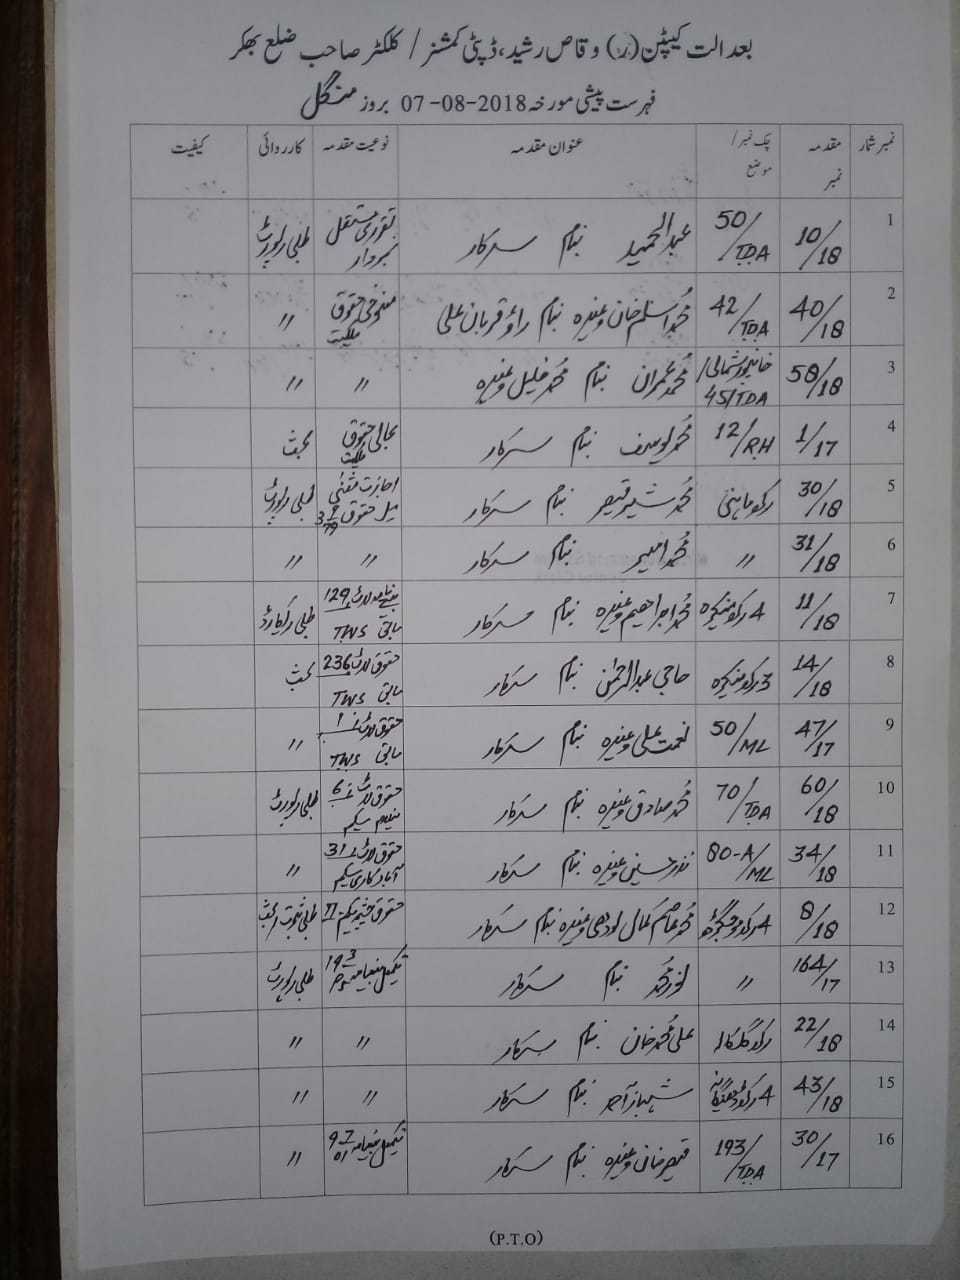 بعدالت کیپٹن (ر) وقاص رشید، ڈپٹی کمشنر / کلکٹر صاحب ضلع بھکر
فہرست پیشی مورخہ 07-08-2018 بروز منگل
نمبر شمار مقدمہ نمبر چک نمبر/موضع عنوان مقدمہ نوعیت مقدمہ کارروائی کیفیت
1 10/18 50/TDA عبدالحمید بنام سرکار تقرری مستقل نمبردار طلبی رپورٹ
2 40/18 42/TDA محمد اسلم خان وغیرہ بنام راؤ قربان علی منسوخی حقوق ملکیت "
3 58/18 خانپور شمالی/ 45/TDA محمد عمران بنام محمد خلیل وغیرہ " "
4 1/17 12/RH محمد یوسف بنام سرکار بحالی حقوق ملکیت بحث
5 30/18 محمد شبیر قیصر بنام سرکار اجازت حقوق 3 طلبی رپورٹ
6 31/18 " محمد امیر بنام سرکار " "
7 11/18 4 رکھ منکیرہ محمد ابراہیم وغیرہ بنام سرکار لاٹ 129 سابقہ TWS طلبی ریکارڈ
8 14/18 3 رکھ منکیرہ حاجی عبدالرحمٰن بنام سرکار حقوق لاٹ 236 سابقہ TWS بحث
9 47/17 50/ML نعمت علی وغیرہ بنام سرکار حقوق لاٹ 1 سابقہ TWS "
10 60/18 70/TDA محمد صادق وغیرہ بنام سرکار حقوق لاٹ نمبر 6 نیلام سکیم طلبی رپورٹ
11 34/18 80-A/ML نذر حسین وغیرہ بنام سرکار حقوق لاٹ 31 آبادکاری سکیم "
12 8/18 4 رکھ محمد عاصم کمال لودھی وغیرہ بنام سرکار حقوق سکیم II طلبی
13 164/17 " نور محمد بنام سرکار تکمیل بیعنامہ طلبی رپورٹ
14 22/18 علی محمد خان بنام سرکار " "
15 43/18 4 رکھ شہباز احمد بنام سرکار " "
16 30/17 193/TDA قیصر خان وغیرہ بنام سرکار تکمیل بیعنامہ "
(P.T.O)